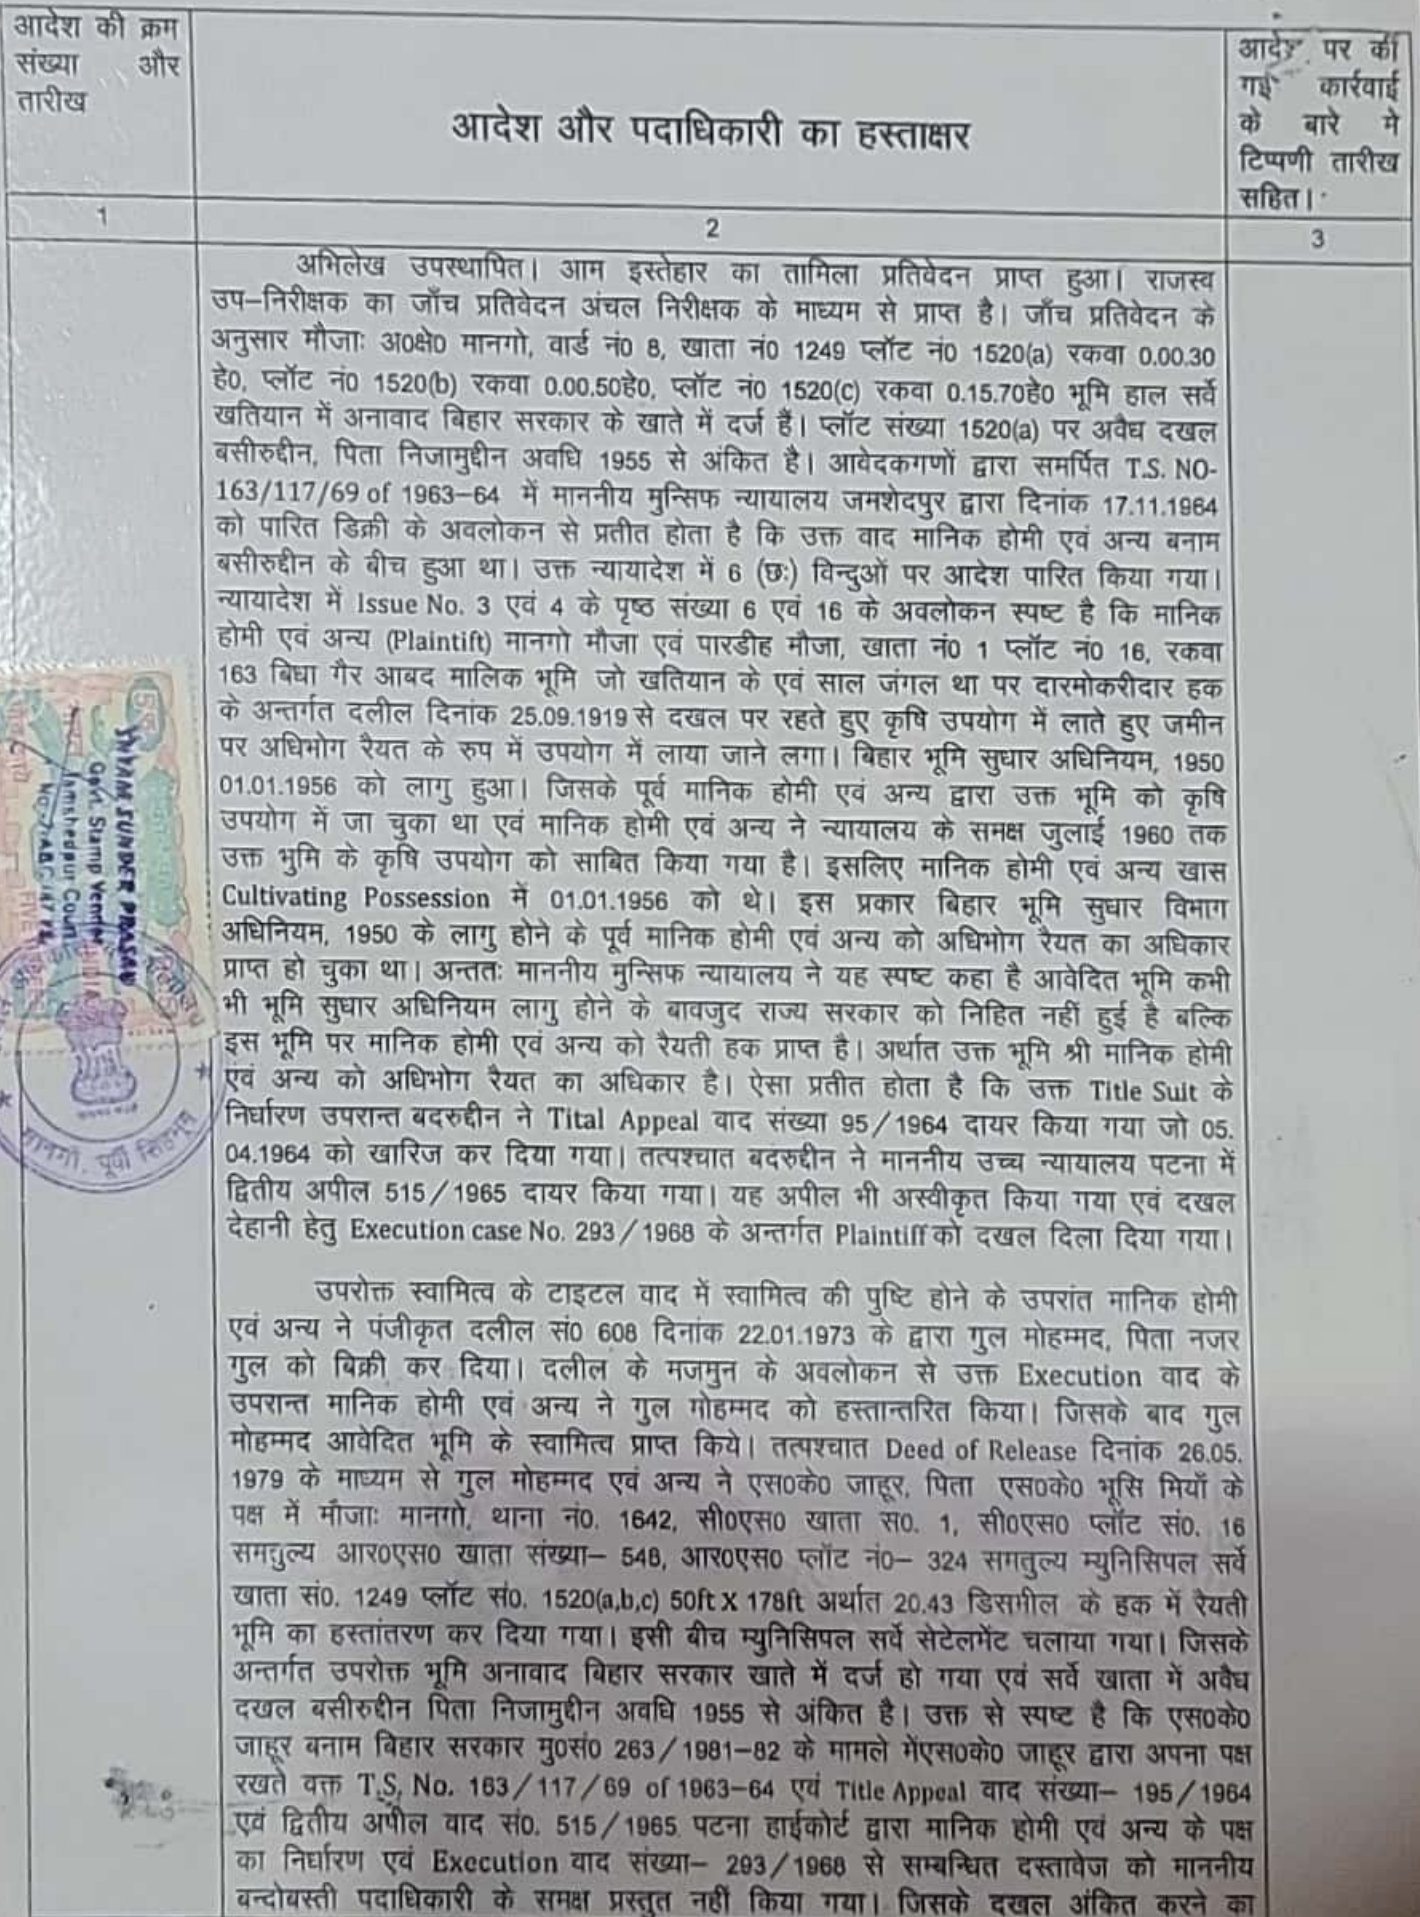 आदेश की क्रम
संख्या और
तारीख
आदेश और पदाधिकारी का हस्ताक्षर
आदेश पर की
गई कार्रवाई
के बारे मे
टिप्पणी तारीख
सहित।
1
2
3
अभिलेख उपस्थापित। आम इस्तेहार का तामिला प्रतिवेदन प्राप्त हुआ। राजस्व
उप-निरीक्षक का जाँच प्रतिवेदन अंचल निरीक्षक के माध्यम से प्राप्त है। जाँच प्रतिवेदन के
अनुसार मौजाः अ0क्षे0 मानगो, वार्ड नं0 8, खाता नं0 1249 प्लॉट नं0 1520(a) रकवा 0.00.30
हे0, प्लॉट नं0 1520(b) रकवा 0.00.50हे0, प्लॉट नं0 1520(c) रकवा 0.15.70हे0 भूमि हाल सर्वे
खतियान में अनावाद बिहार सरकार के खाते में दर्ज हैं। प्लॉट संख्या 1520(a) पर अवैध दखल
बसीरुद्दीन, पिता निजामुद्दीन अवधि 1955 से अंकित है। आवेदकगणों द्वारा समर्पित T.S. NO-
163/117/69 of 1963-64 में माननीय मुन्सिफ न्यायालय जमशेदपुर द्वारा दिनांक 17.11.1964
को पारित डिक्री के अवलोकन से प्रतीत होता है कि उक्त वाद मानिक होमी एवं अन्य बनाम
बसीरुद्दीन के बीच हुआ था। उक्त न्यायादेश में 6 (छः) विन्दुओं पर आदेश पारित किया गया।
न्यायादेश में Issue No. 3 एवं 4 के पृष्ठ संख्या 6 एवं 16 के अवलोकन स्पष्ट है कि मानिक
होमी एवं अन्य (Plaintift) मानगो मौजा एवं पारडीह मौजा, खाता नं0 1 प्लॉट नं0 16, रकवा
163 बिघा गैर आबद मालिक भूमि जो खतियान के एवं साल जंगल था पर दारमोकरीदार हक
के अन्तर्गत दलील दिनांक 25.09.1919 से दखल पर रहते हुए कृषि उपयोग में लाते हुए जमीन
पर अधिभोग रैयत के रुप में उपयोग में लाया जाने लगा। बिहार भूमि सुधार अधिनियम, 1950
01.01.1956 को लागु हुआ। जिसके पूर्व मानिक होमी एवं अन्य द्वारा उक्त भूमि को कृषि
उपयोग में जा चुका था एवं मानिक होमी एवं अन्य ने न्यायालय के समक्ष जुलाई 1960 तक
उक्त भुमि के कृषि उपयोग को साबित किया गया है। इसलिए मानिक होमी एवं अन्य खास
Cultivating Possession में 01.01.1956 को थे। इस प्रकार बिहार भूमि सुधार विभाग
अधिनियम, 1950 के लागु होने के पूर्व मानिक होमी एवं अन्य को अधिभोग रैयत का अधिकार
प्राप्त हो चुका था। अन्ततः माननीय मुन्सिफ न्यायालय ने यह स्पष्ट कहा है आवेदित भूमि कभी
भी भूमि सुधार अधिनियम लागु होने के बावजुद राज्य सरकार को निहित नहीं हुई है बल्कि
इस भूमि पर मानिक होमी एवं अन्य को रैयती हक प्राप्त है। अर्थात उक्त भूमि श्री मानिक होमी
एवं अन्य को अधिभोग रैयत का अधिकार है। ऐसा प्रतीत होता है कि उक्त Title Suit के
निर्धारण उपरान्त बदरुद्दीन ने Tital Appeal वाद संख्या 95/1964 दायर किया गया जो 05.
04.1964 को खारिज कर दिया गया। तत्पश्चात बदरुद्दीन ने माननीय उच्च न्यायालय पटना में
द्वितीय अपील 515/1965 दायर किया गया। यह अपील भी अस्वीकृत किया गया एवं दखल
देहानी हेतु Execution case No. 293/1968 के अन्तर्गत Plaintiff को दखल दिला दिया गया।
उपरोक्त स्वामित्व के टाइटल वाद में स्वामित्व की पुष्टि होने के उपरांत मानिक होमी
एवं अन्य ने पंजीकृत दलील सं0 608 दिनांक 22.01.1973 के द्वारा गुल मोहम्मद, पिता नजर
गुल को बिक्री कर दिया। दलील के मजमुन के अवलोकन से उक्त Execution वाद के
उपरान्त मानिक होमी एवं अन्य ने गुल मोहम्मद को हस्तान्तरित किया। जिसके बाद गुल
मोहम्मद आवेदित भूमि के स्वामित्व प्राप्त किये। तत्पश्चात Deed of Release दिनांक 26.05.
1979 के माध्यम से गुल मोहम्मद एवं अन्य ने एस0के0 जाहूर, पिता एस0के0 भूसि मियाँ के
पक्ष में मौजाः मानगो, थाना नं0. 1642, सी0एस0 खाता स0. 1, सी0एस0 प्लॉट सं0. 16
समतुल्य आर0एस0 खाता संख्या- 548, आर0एस0 प्लॉट नं0- 324 समतुल्य म्युनिसिपल सर्वे
खाता सं0. 1249 प्लॉट सं0. 1520(a,b,c) 50ft X 178ft अर्थात 20.43 डिसमील के हक में रैयती
भूमि का हस्तांतरण कर दिया गया। इसी बीच म्युनिसिपल सर्वे सेटेलमेंट चलाया गया। जिसके
अन्तर्गत उपरोक्त भूमि अनावाद बिहार सरकार खाते में दर्ज हो गया एवं सर्वे खाता में अवैध
दखल बसीरुद्दीन पिता निजामुद्दीन अवधि 1955 से अंकित है। उक्त से स्पष्ट है कि एस0के0
जाहूर बनाम बिहार सरकार मु0सं0 263/1981-82 के मामले मेंएस0के0 जाहूर द्वारा अपना पक्ष
रखते वक्त T.S. No. 163/117/69 of 1963-64 एवं Title Appeal वाद संख्या- 195/1964
एवं द्वितीय अपील वाद सं0. 515/1965 पटना हाईकोर्ट द्वारा मानिक होमी एवं अन्य के पक्ष
का निर्धारण एवं Execution वाद संख्या- 293/1968 से सम्बन्धित दस्तावेज को माननीय
बन्दोबस्ती पदाधिकारी के समक्ष प्रस्तुत नहीं किया गया। जिसके दखल अंकित करने का
SHYAM SUNDER PRASAD
Govt. Stamp Vendor
Jamshedpur Court
FIVE
INDIA
मानगो, पूर्वी सिंहभूम